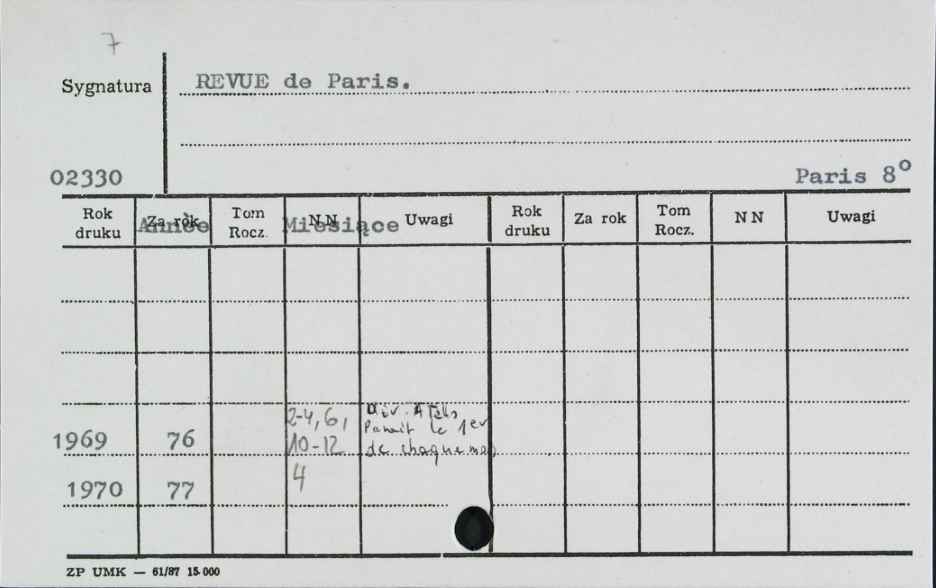 7
Sygnatura
REVUE de Paris.
02330
Paris 8°
Rok druku Za rok Tom Rocz. NN Uwagi Rok druku Za rok Tom Rocz. NN Uwagi
Année Miesiące
2-4, 6,
Paraît le 1er
1969 76 10-12 de chaque mois
1970 77 4
ZP UMK — 61/87 15.000